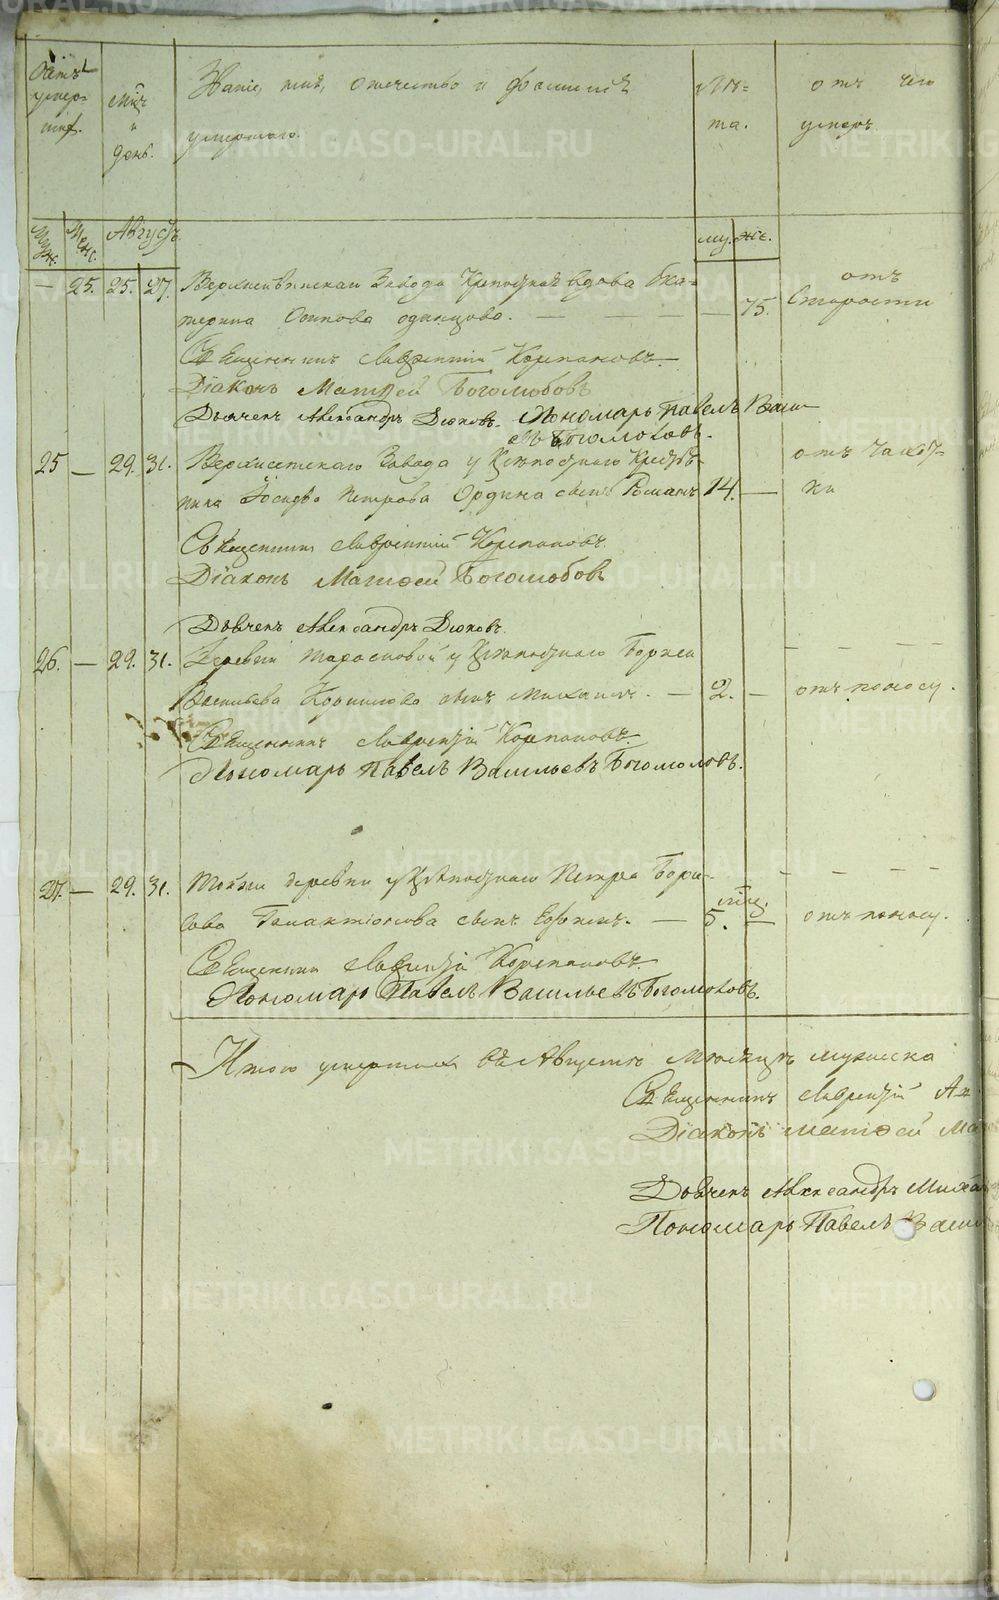 Званіе, имя, отечество и фамилія
умершаго.
мцъ
и
день.
лѣ-
та.
отъ чего
умеръ.
Муж. Жен. Августъ му. же.
— 25. 25. 27. Верхисетскаго Завода Крепостная вдова Ека-
терина Осипова одинцова. — — — — — 75. отъ
Старости
Священникъ Лаврентій Корепановъ
Діаконъ Матѳей Боголюбовъ
Дьячекъ Александръ Дюковъ. Пономарь Павелъ Васи-
Богомоловъ.
25 — 29. 31. Верхисетскаго Завода у Крѣпостнаго
Петрова сынъ Романъ 14. — отъ
Священникъ Лаврентій Корепановъ.
Діаконъ Матѳей Боголюбовъ
Дьячекъ Александръ Дюковъ.
26. — 29. 31. Деревни у Крѣпостнаго Бориса
Васильева Корнилова сынъ Михаилъ. — 2. — отъ поносу.
Священникъ Лаврентій Корепановъ
Пономарь Павелъ Васильевъ Богомоловъ.
27. — 29. 31. Тойже деревни у Крѣпостнаго Петра Бори-
сова сынъ Ефимъ. — 5. мцъ. — отъ поносу.
Священникъ Лаврентій Корепановъ.
Пономарь Павелъ Васильевъ Богомоловъ.
Итого умершихъ въ Августѣ Мѣсяцѣ мужеска
Священникъ Лаврентій
Діаконъ Матѳей
Дьячекъ Александръ Миха
Пономарь Павелъ Васи
METRIKI.GASO-URAL.RU